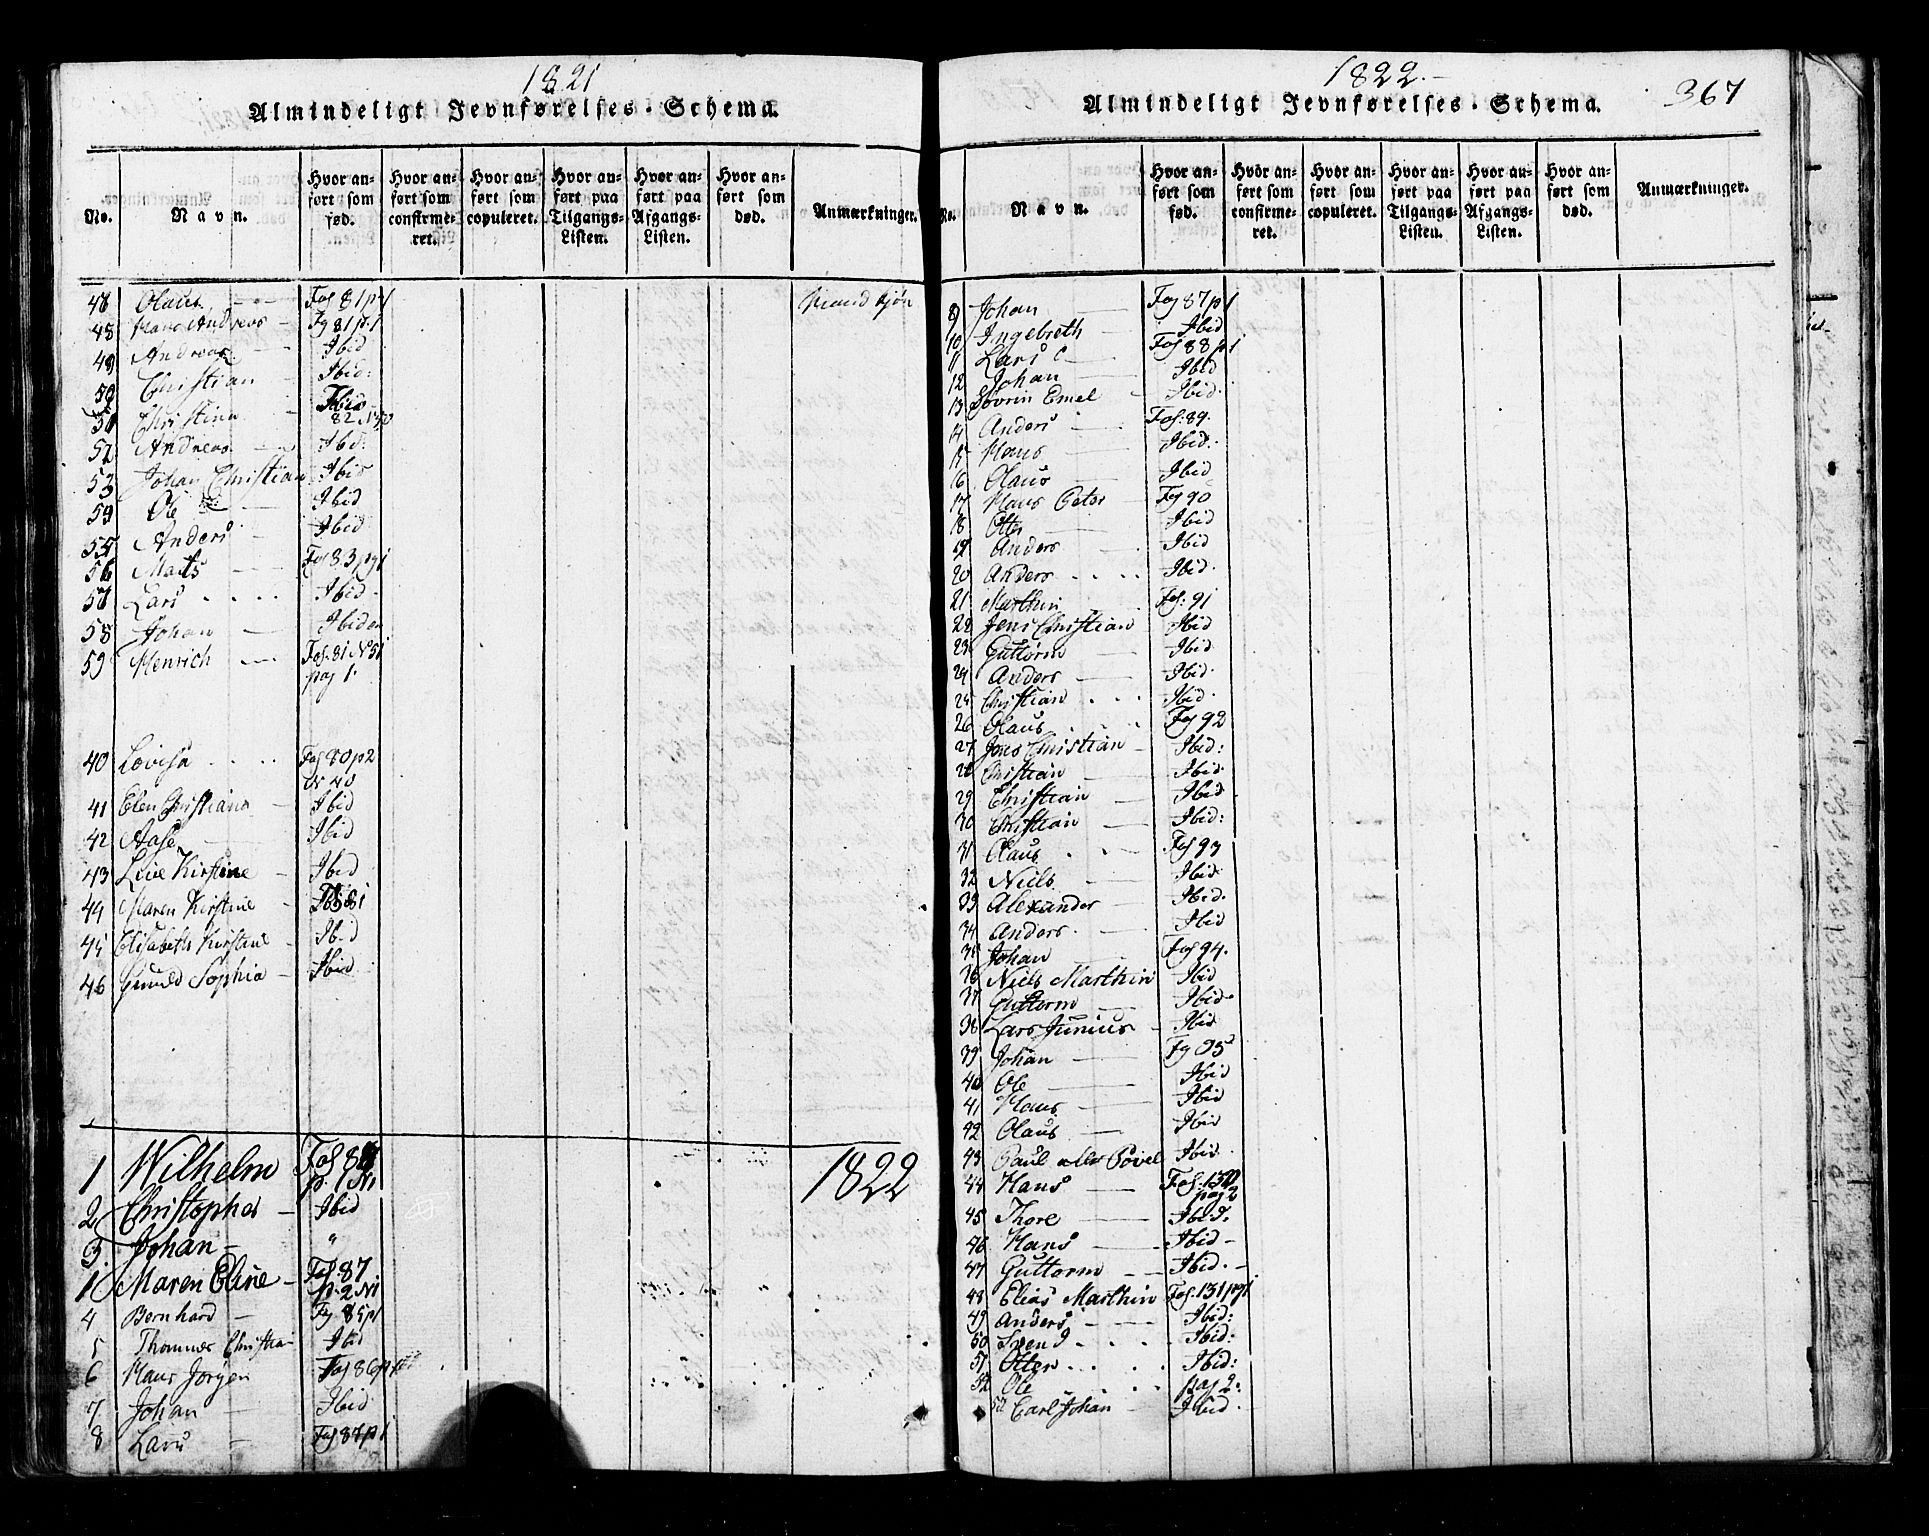 1821
Almindeligt Jevnførelses-Schema.
No. Navn. Hvor anført som fød. Hvor anført som confirmeret. Hvor anført som copuleret. Hvor anført paa Tilgangs-Listen. Hvor anført paa Afgangs-Listen. Hvor anført som død. Anmærkninger.
Olaus Fol 81 p 1 Mand Kjøn
48 Hans Andreas Fol 81 p. 1
49 Andreas Ibid
50 Christian Ibid:
51 Christian Ibid 82
52 Andreas Ibid:
53 Johan Christian Ibid
54 Ole Ibid
55 Anders Ibid
56 Mads Fol 83 pg 1
57 Lars Ibid
58 Johan Ibidem
59 Henrich Fol. 81 N 51
pag 1.
40 Lovisa Fol 80 p 2
N 40
41 Elen Christiana Ibid
42 Aase Ibid
43 Live Kirstine Ibid
44 Maren Kirstine Fol 81
45 Elisabeth Kirstine Ibid
46 Gunild Sophia Ibid
1 Wilhelm 1822
p. 1 N 1
2 Christopher Ibid
3 Johan "
1 Maren Eline Fol 87
p. 2 N 1
4 Bernhard Fol 85 p 1
5 Thommes Christian Ibid
6 Hans Jørgen Fol 86 p 1
7 Johan Ibid
8 Lars Fol 87 p 1
1822.
367
Almindeligt Jevnførelses-Schema.
No. Navn. Hvor anført som fød. Hvor anført som confirmeret. Hvor anført som copuleret. Hvor anført paa Tilgangs-Listen. Hvor anført paa Afgangs-Listen. Hvor anført som død. Anmærkninger.
9 Johan Fol 87 p 1
10 Ingebreth Ibid
11 Lars Fol 88 p 1
12 Johan Ibid
13 Søvrin Emel Ibid.
14 Anders Fol. 89.
15 Hans Ibid.
16 Olaus Ibid
17 Hans Peter Fol 90
18 Otter Ibid
19 Anders Ibid
20 Anders Ibid.
21 Marthin Fol. 91
22 Jens Christian Ibid
23 Guttorm Ibid.
24 Anders Ibid.
25 Christian Ibid.
26 Olaus Fol 92
27 Jens Christian Ibid:
28 Christian Ibid
29 Christian Ibid.
30 Christian Ibid:
31 Olaus Fol 93
32 Niels Ibid
33 Alexander Ibid.
34 Anders Ibid
35 Johan Fol 94.
36 Niels Marthin Ibid
37 Guttorm Ibid.
38 Lars Junius Ibid
39 Johan Fol 95
40 Ole Ibid
41 Hans Ibid
42 Olaus Ibid
43 Paul eller Povel Ibid.
44 Hans Fol. 130
pag 2
45 Thore Ibid.
46 Hans Ibid
47 Guttorm Ibid.
48 Elias Marthin Fol. 131 pg 1
49 Anders Ibid:
50 Svend Ibid:
51 Otter Ibid:
52 Ole pag 2.
Carl Johan Ibid.